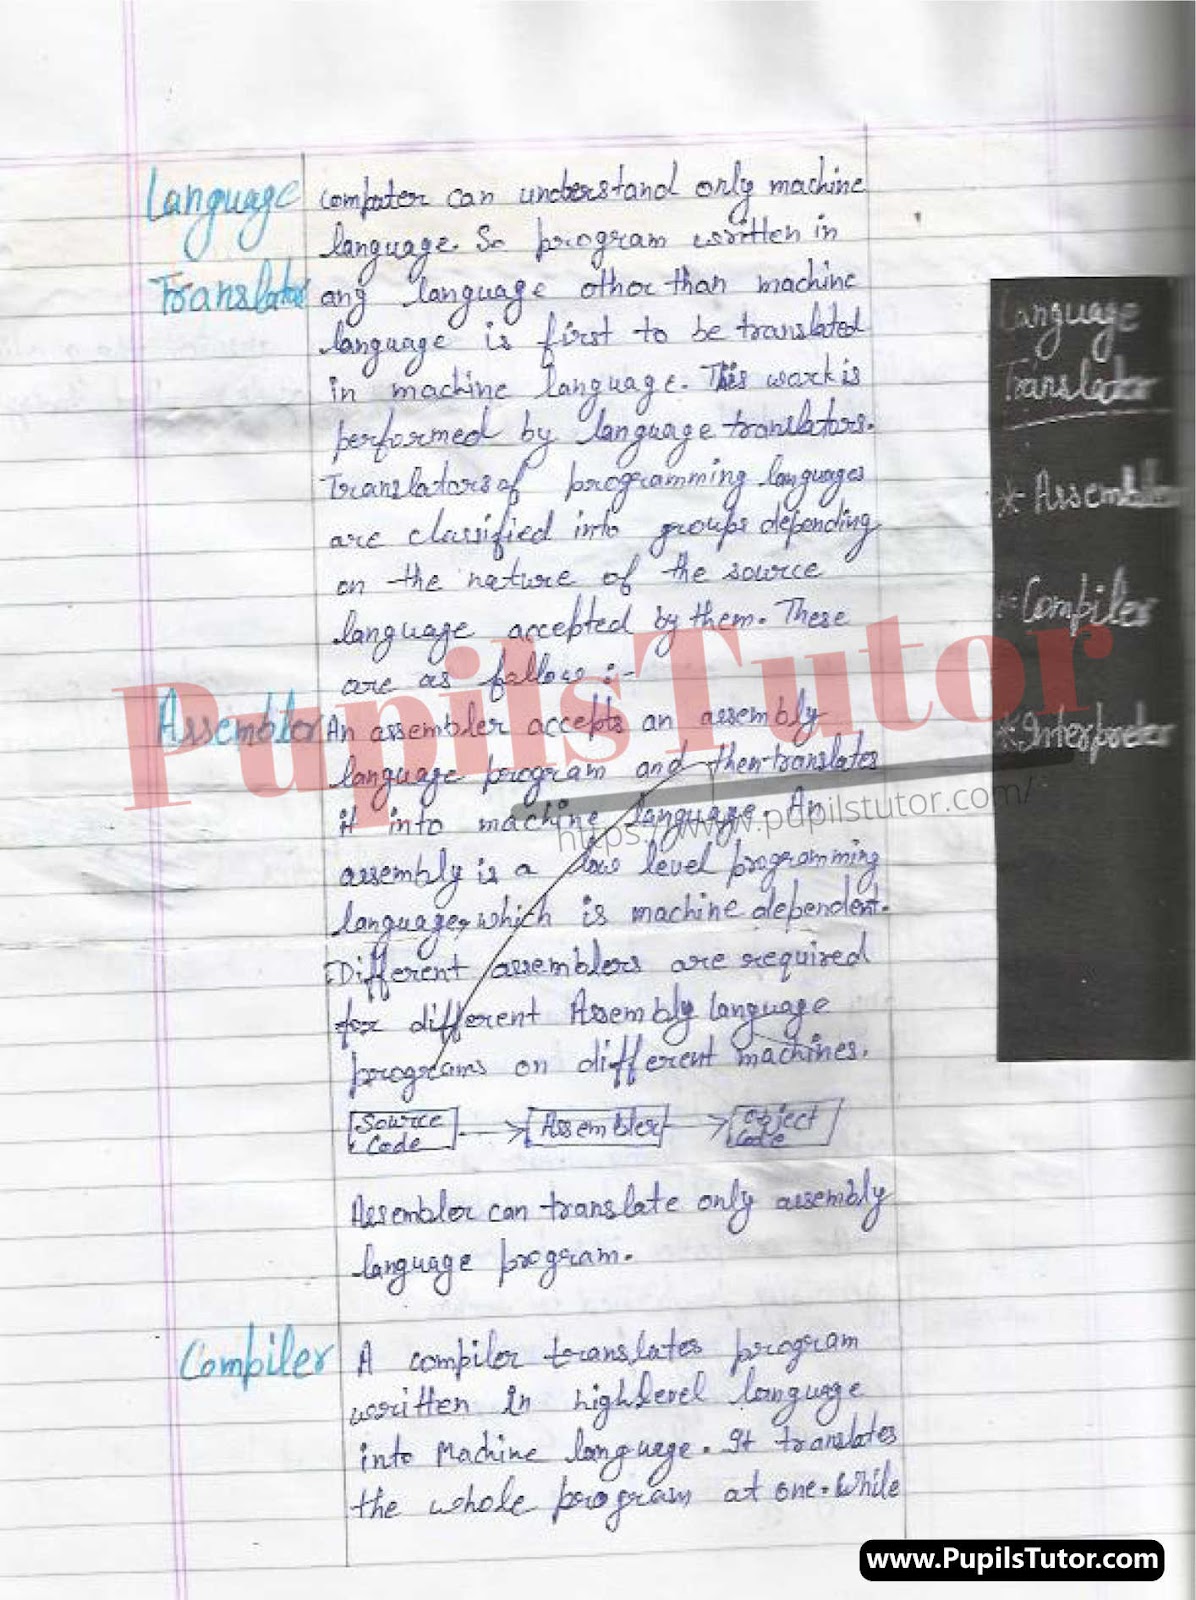 Language
Translator
Computer can understand only machine
language. So program written in
any language other than machine
language is first to be translated
in machine language. This work is
performed by language translators.
Translators of programming languages
are classified into groups depending
on the nature of the source
language accepted by them. These
are as follow :-
Assembler
An assembler accepts an assembly
language program and then translates
it into machine language. An
assembly is a low level programming
language, which is machine dependent.
Different assemblers are required
for different Assembly language
programs on different machines.
Source Code
Assembler
Object Code
Assembler can translate only assembly
language program.
Compiler
A compiler translates program
written in high level language
into Machine language. It translates
the whole program at one. While
Language
Translator
* Assembler
* Compiler
* Interpreter
PupilsTutor
https://www.pupilstutor.com/
www.PupilsTutor.com